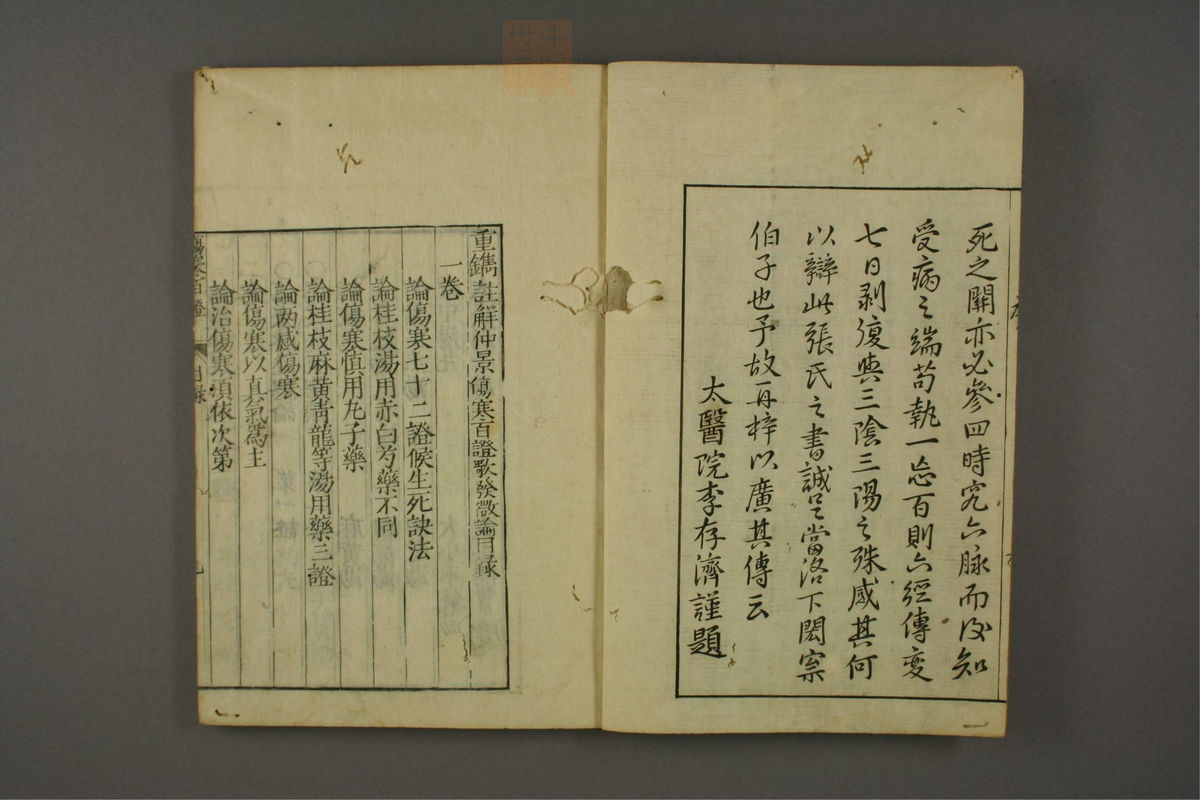 死之關亦必參四時究六脉而後知
受病之端苟執一忘百則六經傳變
七日剥復與三陰三陽之殊感其何
以辯此張氏之書誠 當洛下閎
伯子也予故再梓以廣其傳云
太醫院李存濟謹題
重鐫註解仲景傷寒百證歌發微論目録
一卷
論傷寒七十二證候生死訣法
論桂枝湯用赤白芍藥不同
論傷寒慎用丸子藥
論桂枝麻黄青龍等湯用藥三證
論两感傷寒
論傷寒以真氣爲主
論治傷寒須依次第
傷寒百證 目録